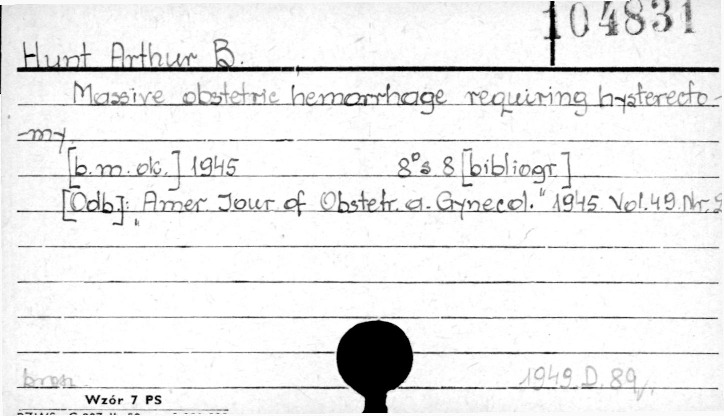 104831
Hunt Arthur B.
Massive obstetric hemorrhage requiring hysterecto-
-my.
[b.m.ok.] 1945 8°s. 8 [bibliogr.]
[Odb]: "Amer. Jour of Obstetr. a. Gynecol." 1945 Vol.49. Nr.
1949 D. 89
Wzór 7 PS